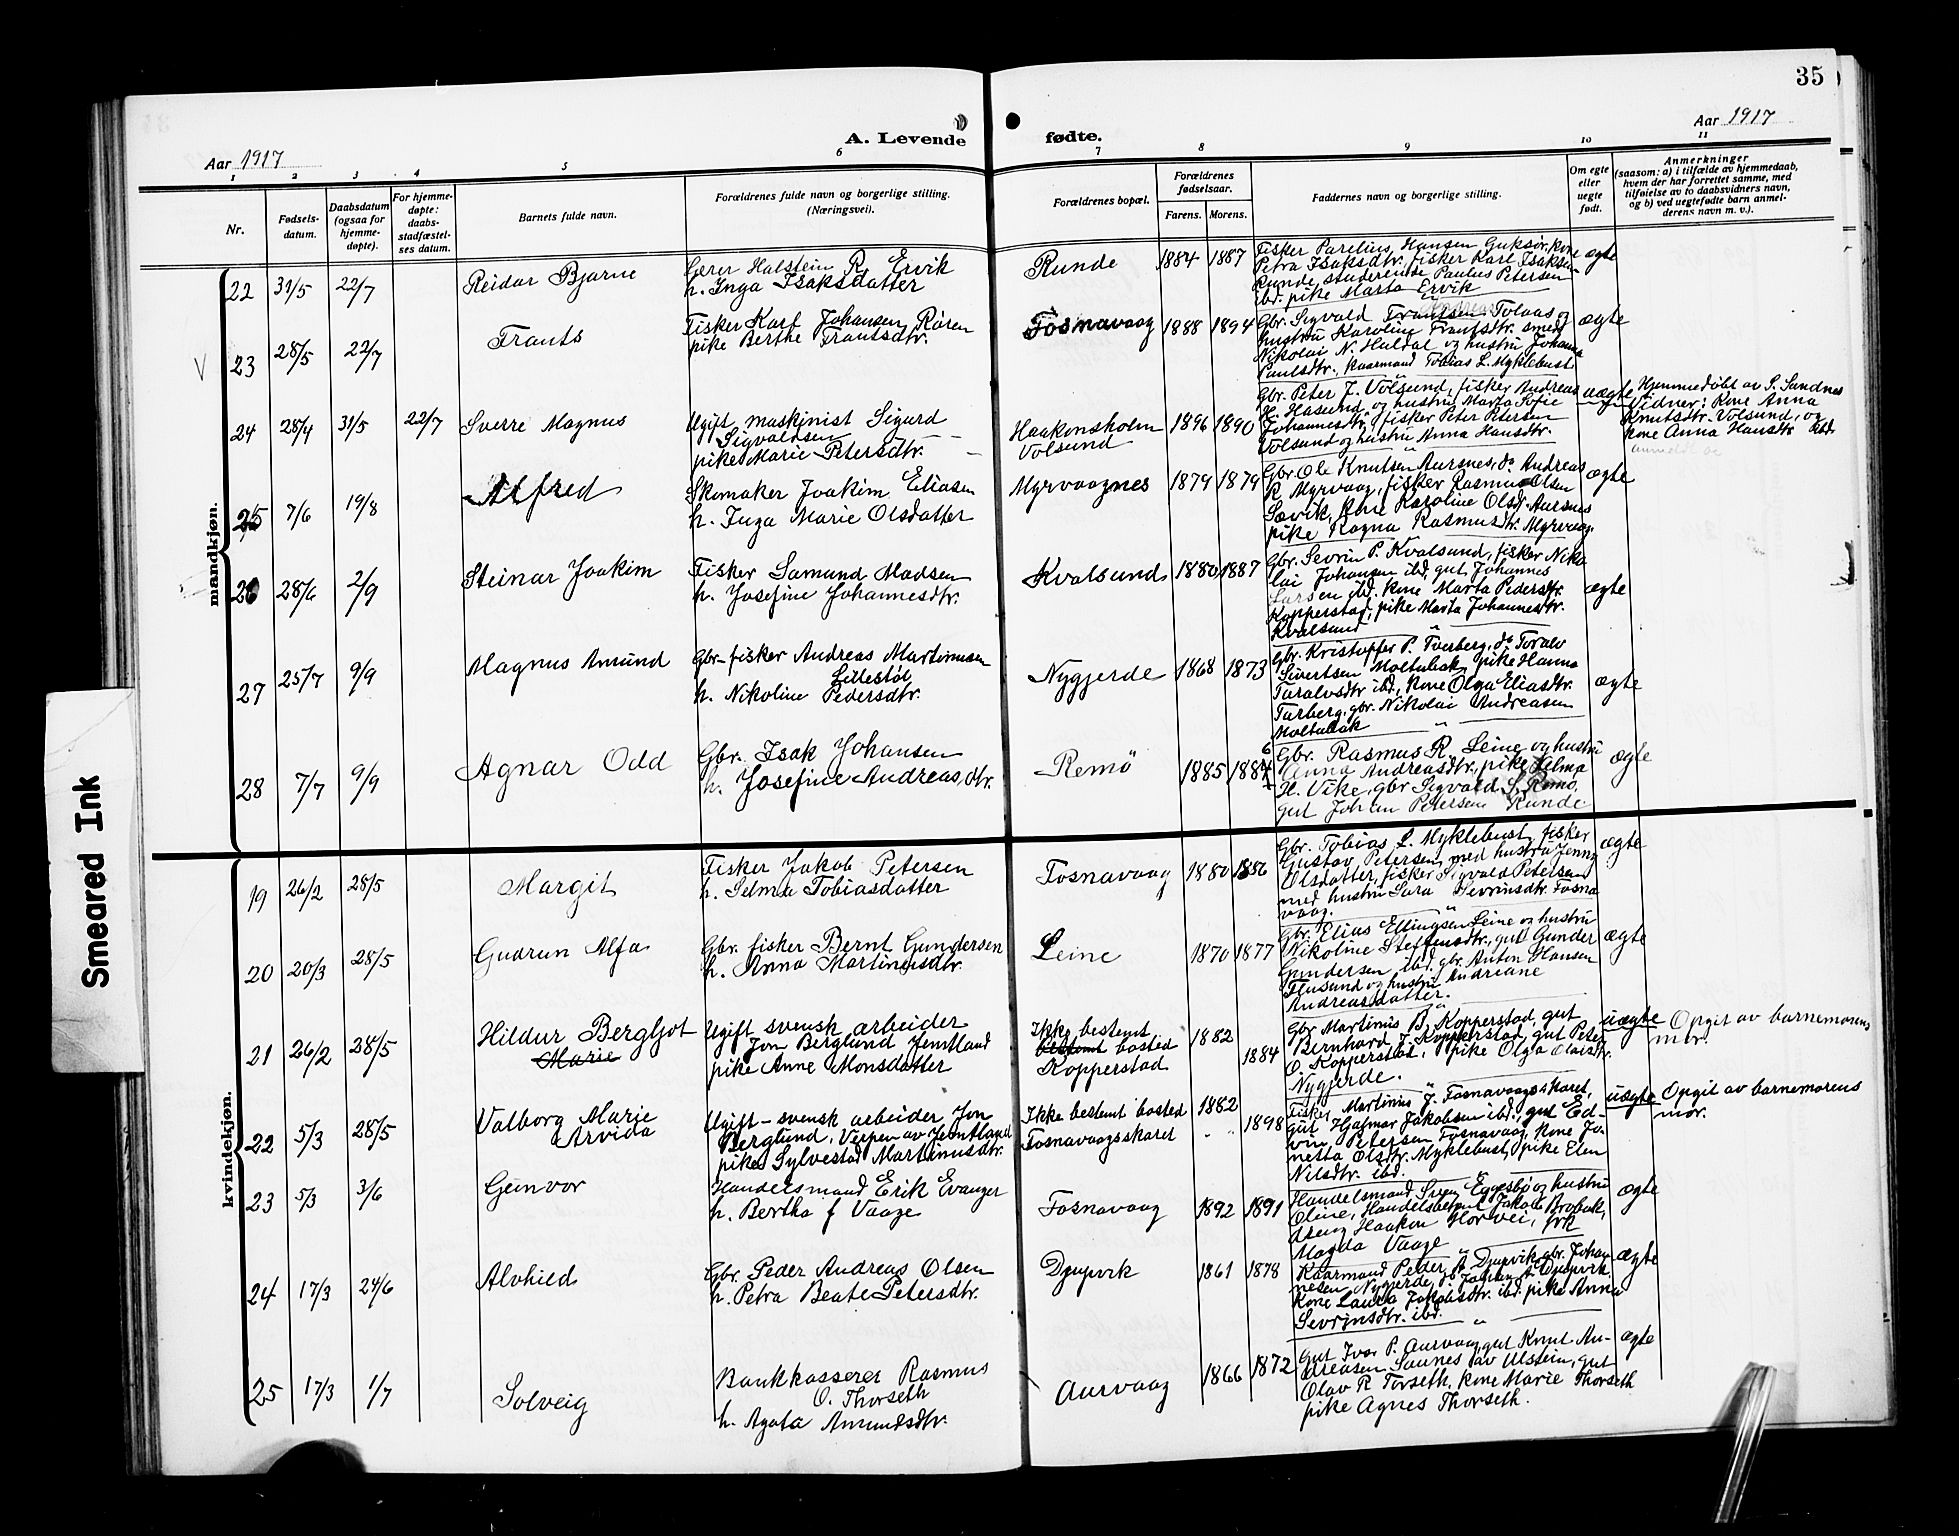 35
Aar 1917
A. Levende fødte.
Aar 1917
1 2 3 4 5 6 7 8 9 10 11
Nr.
Fødsels-
datum.
Daabsdatum
(ogsaa for
hjemme-
døpte).
For hjemme-
døpte:
daabs-
stadfæstel-
ses datum.
Barnets fulde navn.
Forældrenes fulde navn og borgerlige stilling.
(Næringsvei).
Forældrenes bopæl.
Forældrenes
fødselsaar.
Farens. Morens.
Faddernes navn og borgerlige stilling.
Om egte
eller
uegte
født.
Anmerkninger
(saasom: a) i tilfælde av hjemmedaab,
hvem der har forrettet samme, med
tilføielse av to daabsvidners navn,
og b) ved uegtefødte barn anmel-
derens navn m. v.).
mandkjøn.
22 31/5 22/7 Reidar Bjarne
Gerer Halstein R. Ervik
h. Inga Isaksdatter
Runde 1884 1887
Fisker Parelius Hansen Goksør, kone
Petra Isaksdtr. fisker Karl Isaksen
Runde, studerende Paulus Petersen
ibd. pike Marta Ervik
ægte
V 23 28/5 22/7 Frants
Fisker Karl Johansen Røren
pike Berthe Frantsdtr.
Fosnavaag 1888 1894
Gbr. Sigvald Tolaas og
hustru Karoline Frantsdtr. smed
Nikolai N. Haldal og hustru Johanna
Paulsdtr., kaarmand Tobias L. Myklebust
ægte
24 28/4 31/5 22/7 Sverre Magnus
Ugift maskinist Sigurd
Sigvaldsen
pike Marie Petersdtr.
Haakonsholm
Volsund
1896 1890
Gbr. Peter J. Volsund, fisker Andreas
H. Hasund og hustru Marta Sofie
Johannesdtr., fisker Peter Petersen
Volsund og hustru Anna Hansdtr.
uægte
Hjemmedøbt av S. Sandnes
Vidner: Kone Anna
Knutsdtr. Volsund, og
kone Anna Hansdtr ibd.
25 7/6 19/8 Alfred
Skomaker Joakim Eliasen
h. Inga Marie Olsdatter
Myrvaagnes 1879 1879
Gbr. Ole Knutsen Aursnes, do Andreas
R. Myrvaag, fisker Rasmus Olsen
Sævik, kone Karoline Olsd. Aursnes
pike Ragna Rasmusdtr. Myrvaag.
ægte
26 28/6 2/9 Steinar Joakim
Fisker Samund Madsen
h. Josefine Johannesdtr.
Kvalsund 1880 1887
Gbr. Sevrin P. Kvalsund, fisker Niko
lai Johansen ibd, gut Johannes
Larsen ibd. kone Marta Pedersdtr.
Kopperstad, pike Marta Johannesdtr.
Kvalsund
ægte
27 25/7 9/9 Magnus Amund
Gbr-fisker Andreas Martinusen
Lillestøl
h. Nikoline Pedersdtr.
Nygjerde 1868 1873
Gbr. Kristoffer P. Tverberg, do Toralv
Sivertsen Moltubak, pike Hanna
Toralvsdtr ibd, kone Olga Eliasdtr.
Tarberg, gbr. Nikolai Andreasen
Moltubak
ægte
28 7/7 9/9 Agnar Odd
Gbr. Isak Johansen
h. Josefine Andreasdtr.
Remö 1885 1884 6
Gbr. Rasmus R. Leine og hustru
Anna Andreasdtr., pike Alma
H. Vike, gbr Sigvald S. Remö,
gut Johan Petersen Runde
ægte
kvindekjøn.
19 26/2 28/5 Margit
Fisker Jakob Petersen
h. Selma Tobiasdatter
Fosnavaag 1880 1886
Gbr. Tobias L. Myklebust, fisker
Gustav Petersen med hustru Jenny
Olsdatter, fisker Sigvald Petersen
med hustru Sara Sevrinsdtr. Fosna
vaag.
ægte
20 20/3 28/5 Gudrun Alfa
Gbr. fisker Bernt Gundersen
h. Anna Martinusdtr.
Leine 1870 1877
Gbr. Elias Ellingsen Leine og hustru
Nikoline Steffensdtr., gut Gunder
Gundersen ibd. gbr. Anton Hansen
Flusund og hustru Andreane
Andreasdatter.
ægte
21 26/2 28/5 Hildur Bergljot
Marie
Ugift svensk arbeider
Jon Berglund Jemtland
pike Anne Monsdatter
Ikke bestemt
bestemt bosted
Kopperstad
1882 1884
Gbr Martinus B. Kopperstad, gut
Bernhard J. Kopperstad, gut Peter
O. Kopperstad, pike Olga Olaisdtr.
Nygjerde.
uægte
Opgit av barnemorens
mor.
22 5/3 28/5 Valborg Marie
Arvida
Ugift - svensk arbeider Jon
Berglund, Verpen av Jemtland
pike Sylvestad Martinusdtr.
Ikke bestemt bosted
Fosnavaagsskaret
1882 1898
Fisker Martinus J. Fosnavaagsskaret,
gut Hjalmar Jakobsen ibd., gut Ed-
vin Petersen Fosnavaag, kone Jo-
netta Olsdtr. Myklebust, pike Elen
Nilsdtr. ibd.
uægte
Opgit av barnemorens
mor.
23 5/3 3/6 Geinvor
Handelsmand Erik Evanger
h. Bertha f Vaage
Fosnavaag 1892 1891
Handelsmand Sven Eggesbø og hustru
Oline, Handelsbetjent Jakob Brobak,
dreng Haakon Horvei, frk
Magda Vaage
ægte
24 17/3 24/6 Alvhild
Gbr. Peder Andreas Olsen
h. Petra Beate Petersdtr.
Djupvik 1861 1878
Kaarmand Peder A. Djupvik, gbr. Johan
nesen Nygjerde, do Johan A. Djupvik
kone Laura Jakobsdtr. ibd. pike Anna
Sevrinsdtr. ibd.
ægte
25 17/3 1/7 Solveig
Bankkasserer Rasmus
O. Thorseth
h. Agata Amundsdtr.
Aurvaag 1866 1872
Gut Ivar P. Aurvaag, gut Knut An-
dreasen Saunes av Ulstein, gut
Olav R Torseth, kone Marie Thorseth
pike Agnes Thorseth.
ægte
Smeared Ink